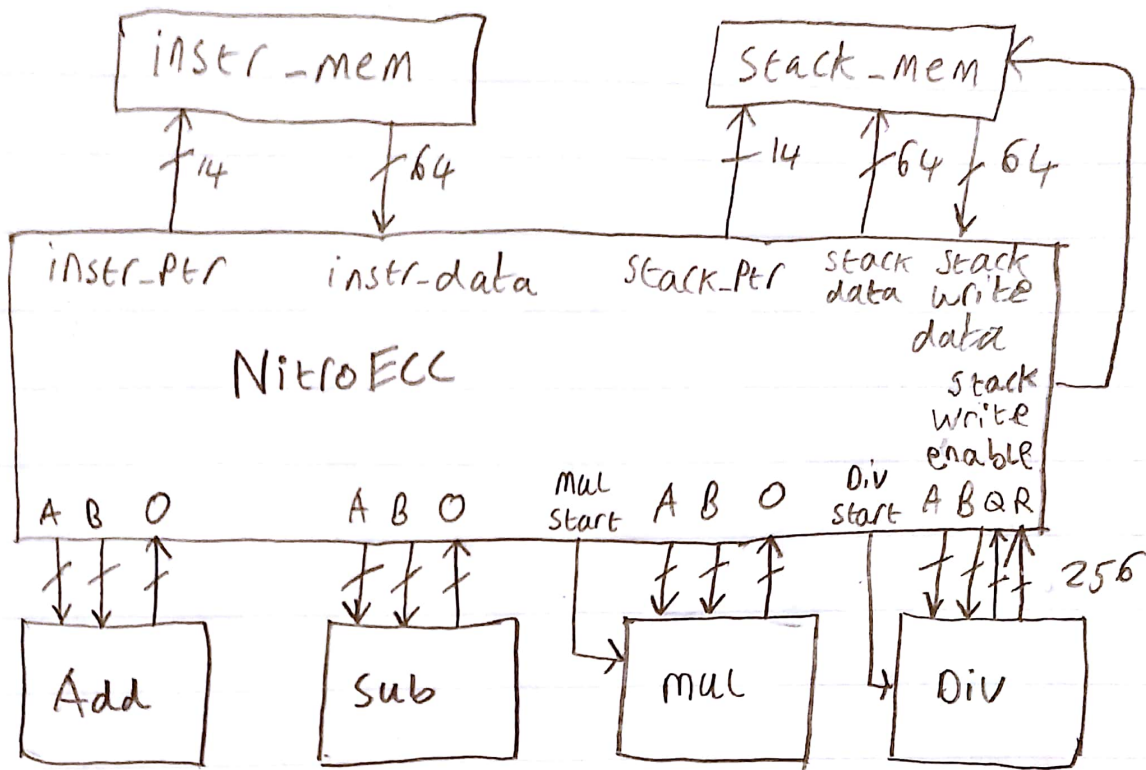 instr_mem
stack_mem
14
64
14
64
64
instr_ptr
instr_data
stack_ptr
stack
data
stack
write
data
NitroECC
stack
write
enable
A B O
A B O
mul
start
A B O
Div
start
A B Q R
256
Add
Sub
mul
Div